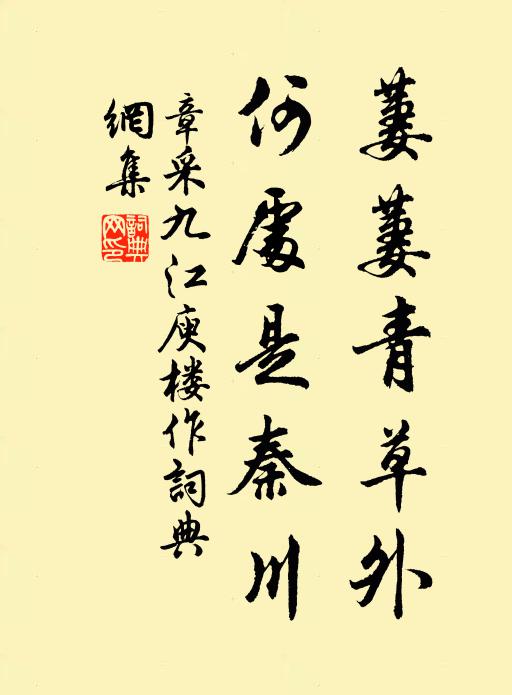 萋萋青草外
何處是秦川
章采九江庾楼作詞典
網集
詞典
网印